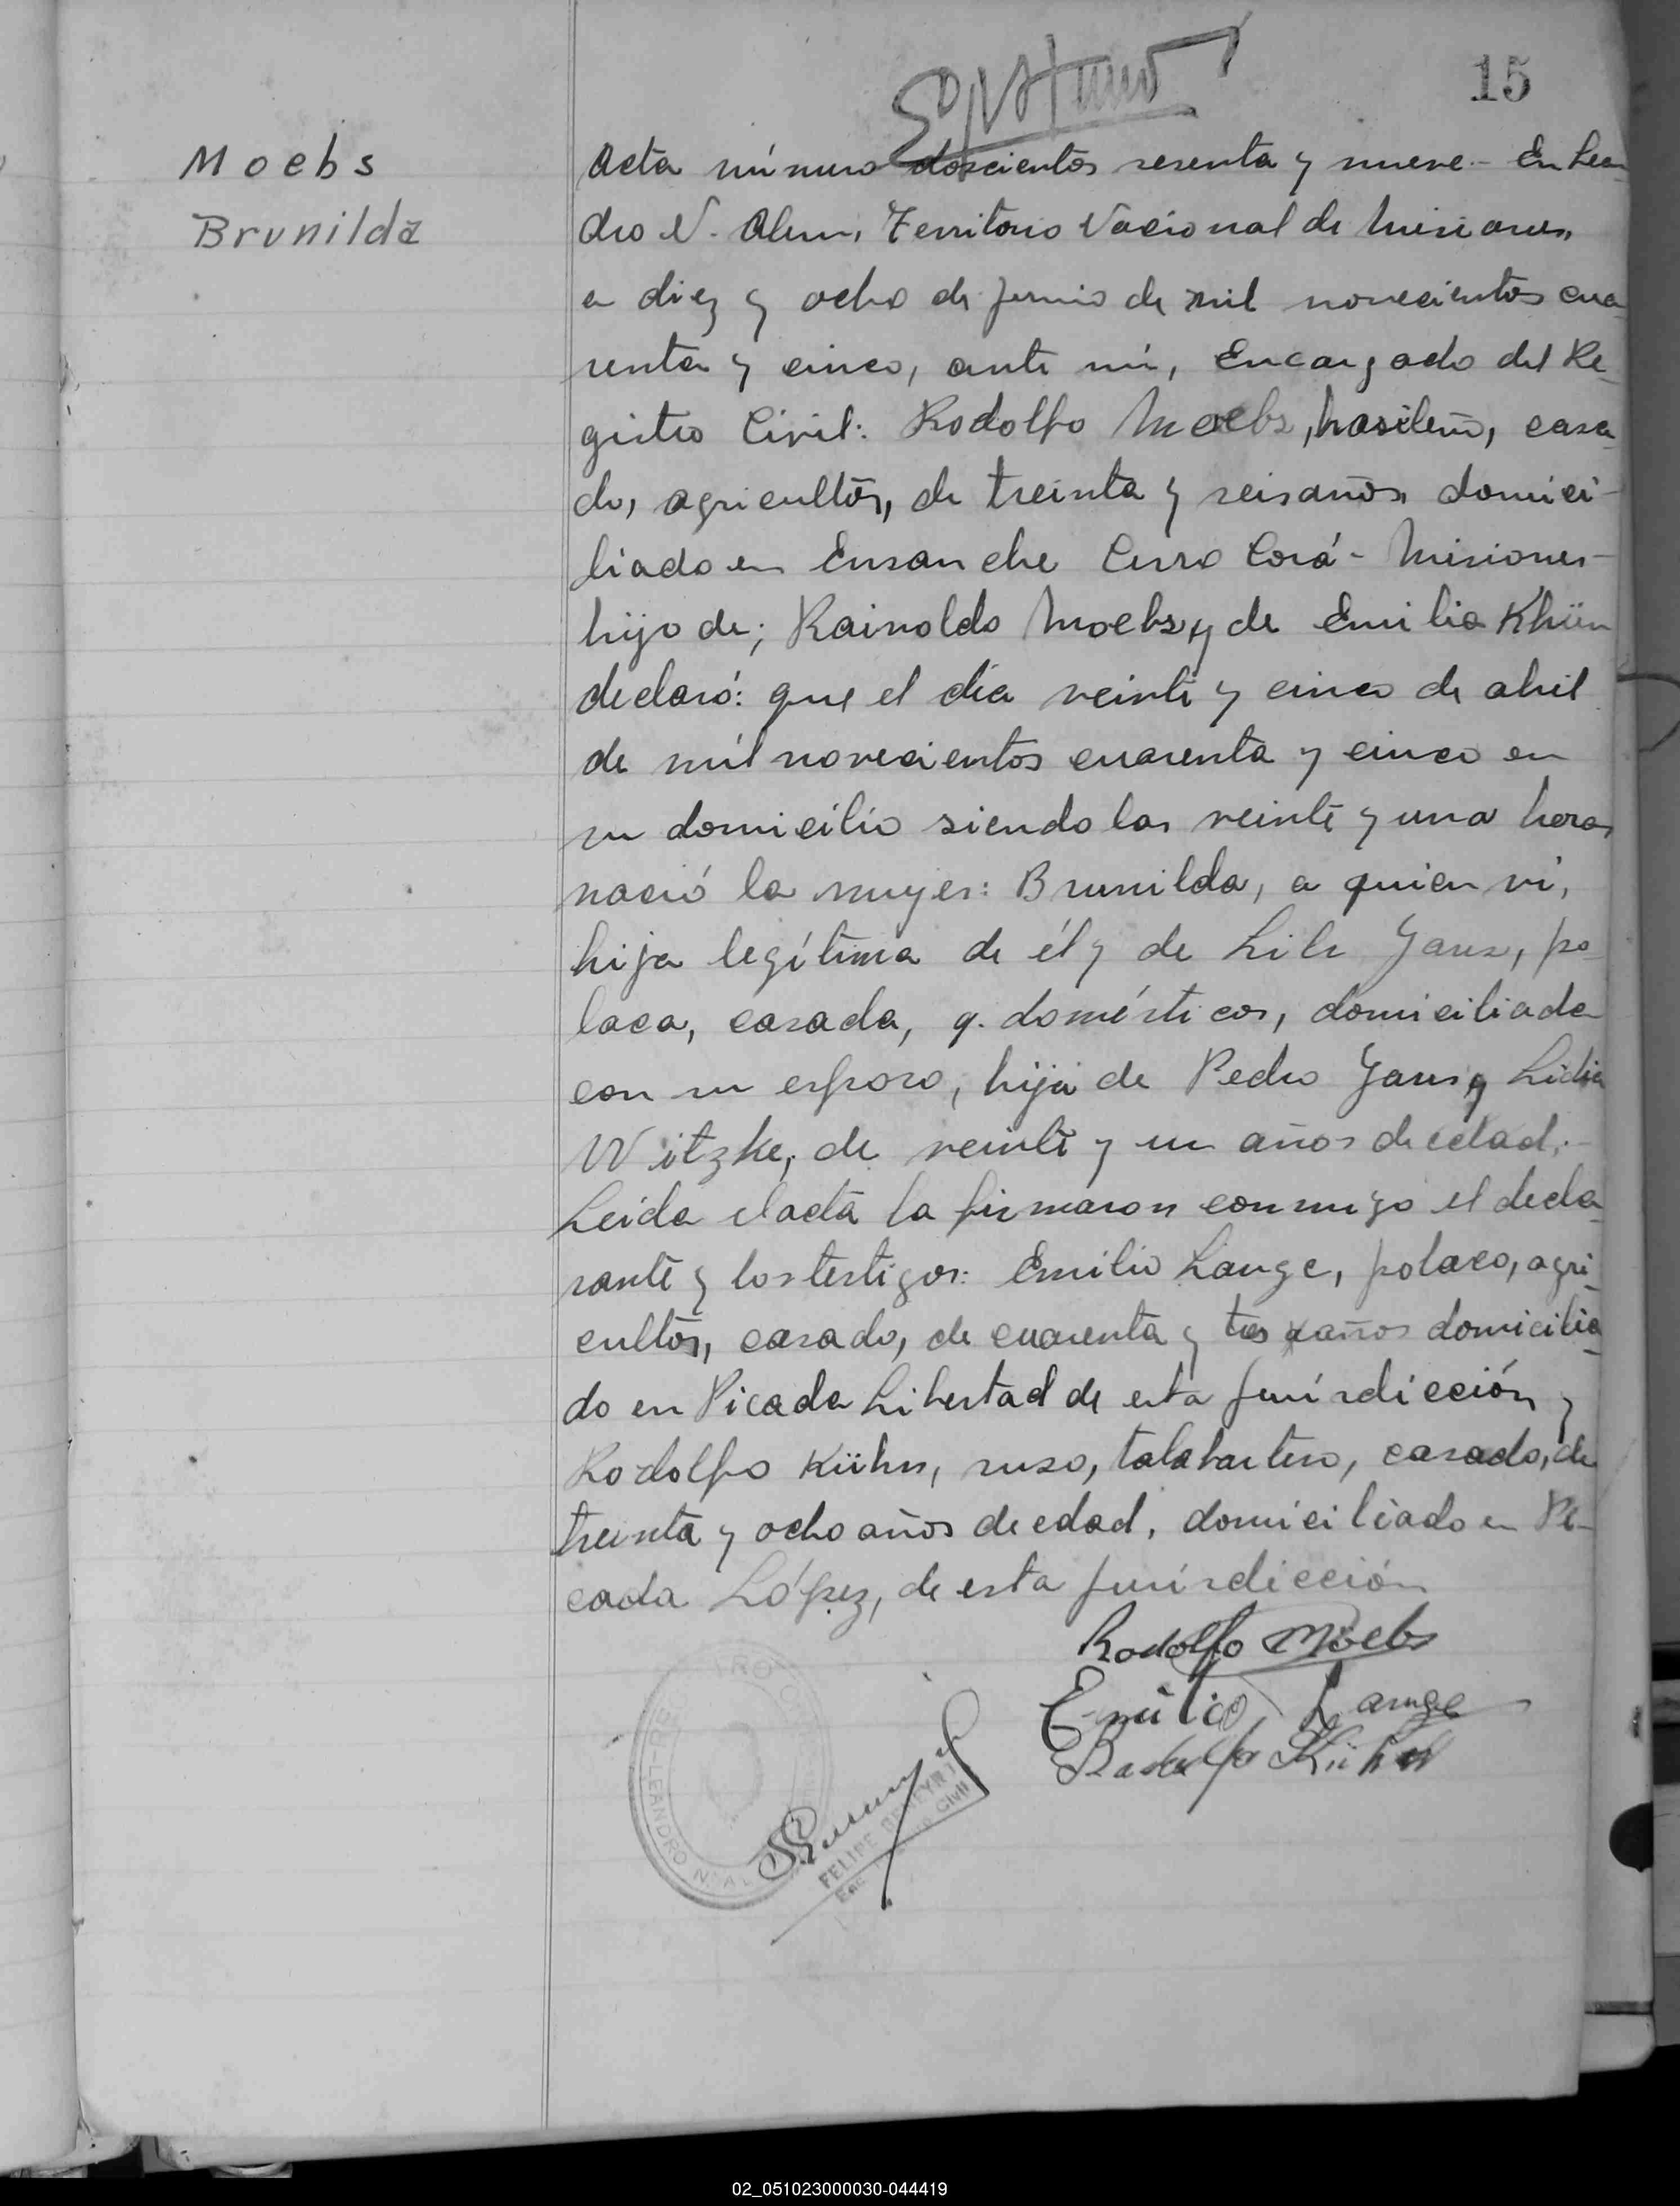 15
Moebs
Brunilda
Acta número doscientos sesenta y nueve.- En Lean
dro N. Alem, Territorio Nacional de Misiones,
a diez y ocho de junio de mil novecientos cua
renta y cinco, ante mí, Encargado del Re-
gistro Civil: Rodolfo Moebs, brasileño, casa
do, agricultor, de treinta y seis años, domici-
liado en Ensanche Cerro Corá - Misiones -
hijo de; Rainoldo Moebs, y de Emilia Khün
declaró: que el día veinti y cinco de abril
de mil novecientos cuarenta y cinco en
su domicilio siendo las veinte y una horas
nació la mujer: Brunilda, a quien ví,
hija legítima de él y de Lili Jans, po-
laca, casada, q. domésticos, domiciliada
con su esposo, hija de Pedro Jans y Lidia
Witzke, de veinte y un años de edad.-
Leida el acta la firmaron conmigo el decla-
rante y los testigos: Emilio Lange, polaco, agri-
cultor, casado, de cuarenta y tres años domicilia-
do en Picada Libertad de esta jurisdicción y
Rodolfo Kühn, ruso, talabartero, casado, de
treinta y ocho años de edad, domiciliado en Pi-
cada López, de esta jurisdicción
Rodolfo Moebs
Emilio Lange
Rodolfo Kühn
LEANDRO N. AL
FELIPE
CIVIL
02_051023000030-044419